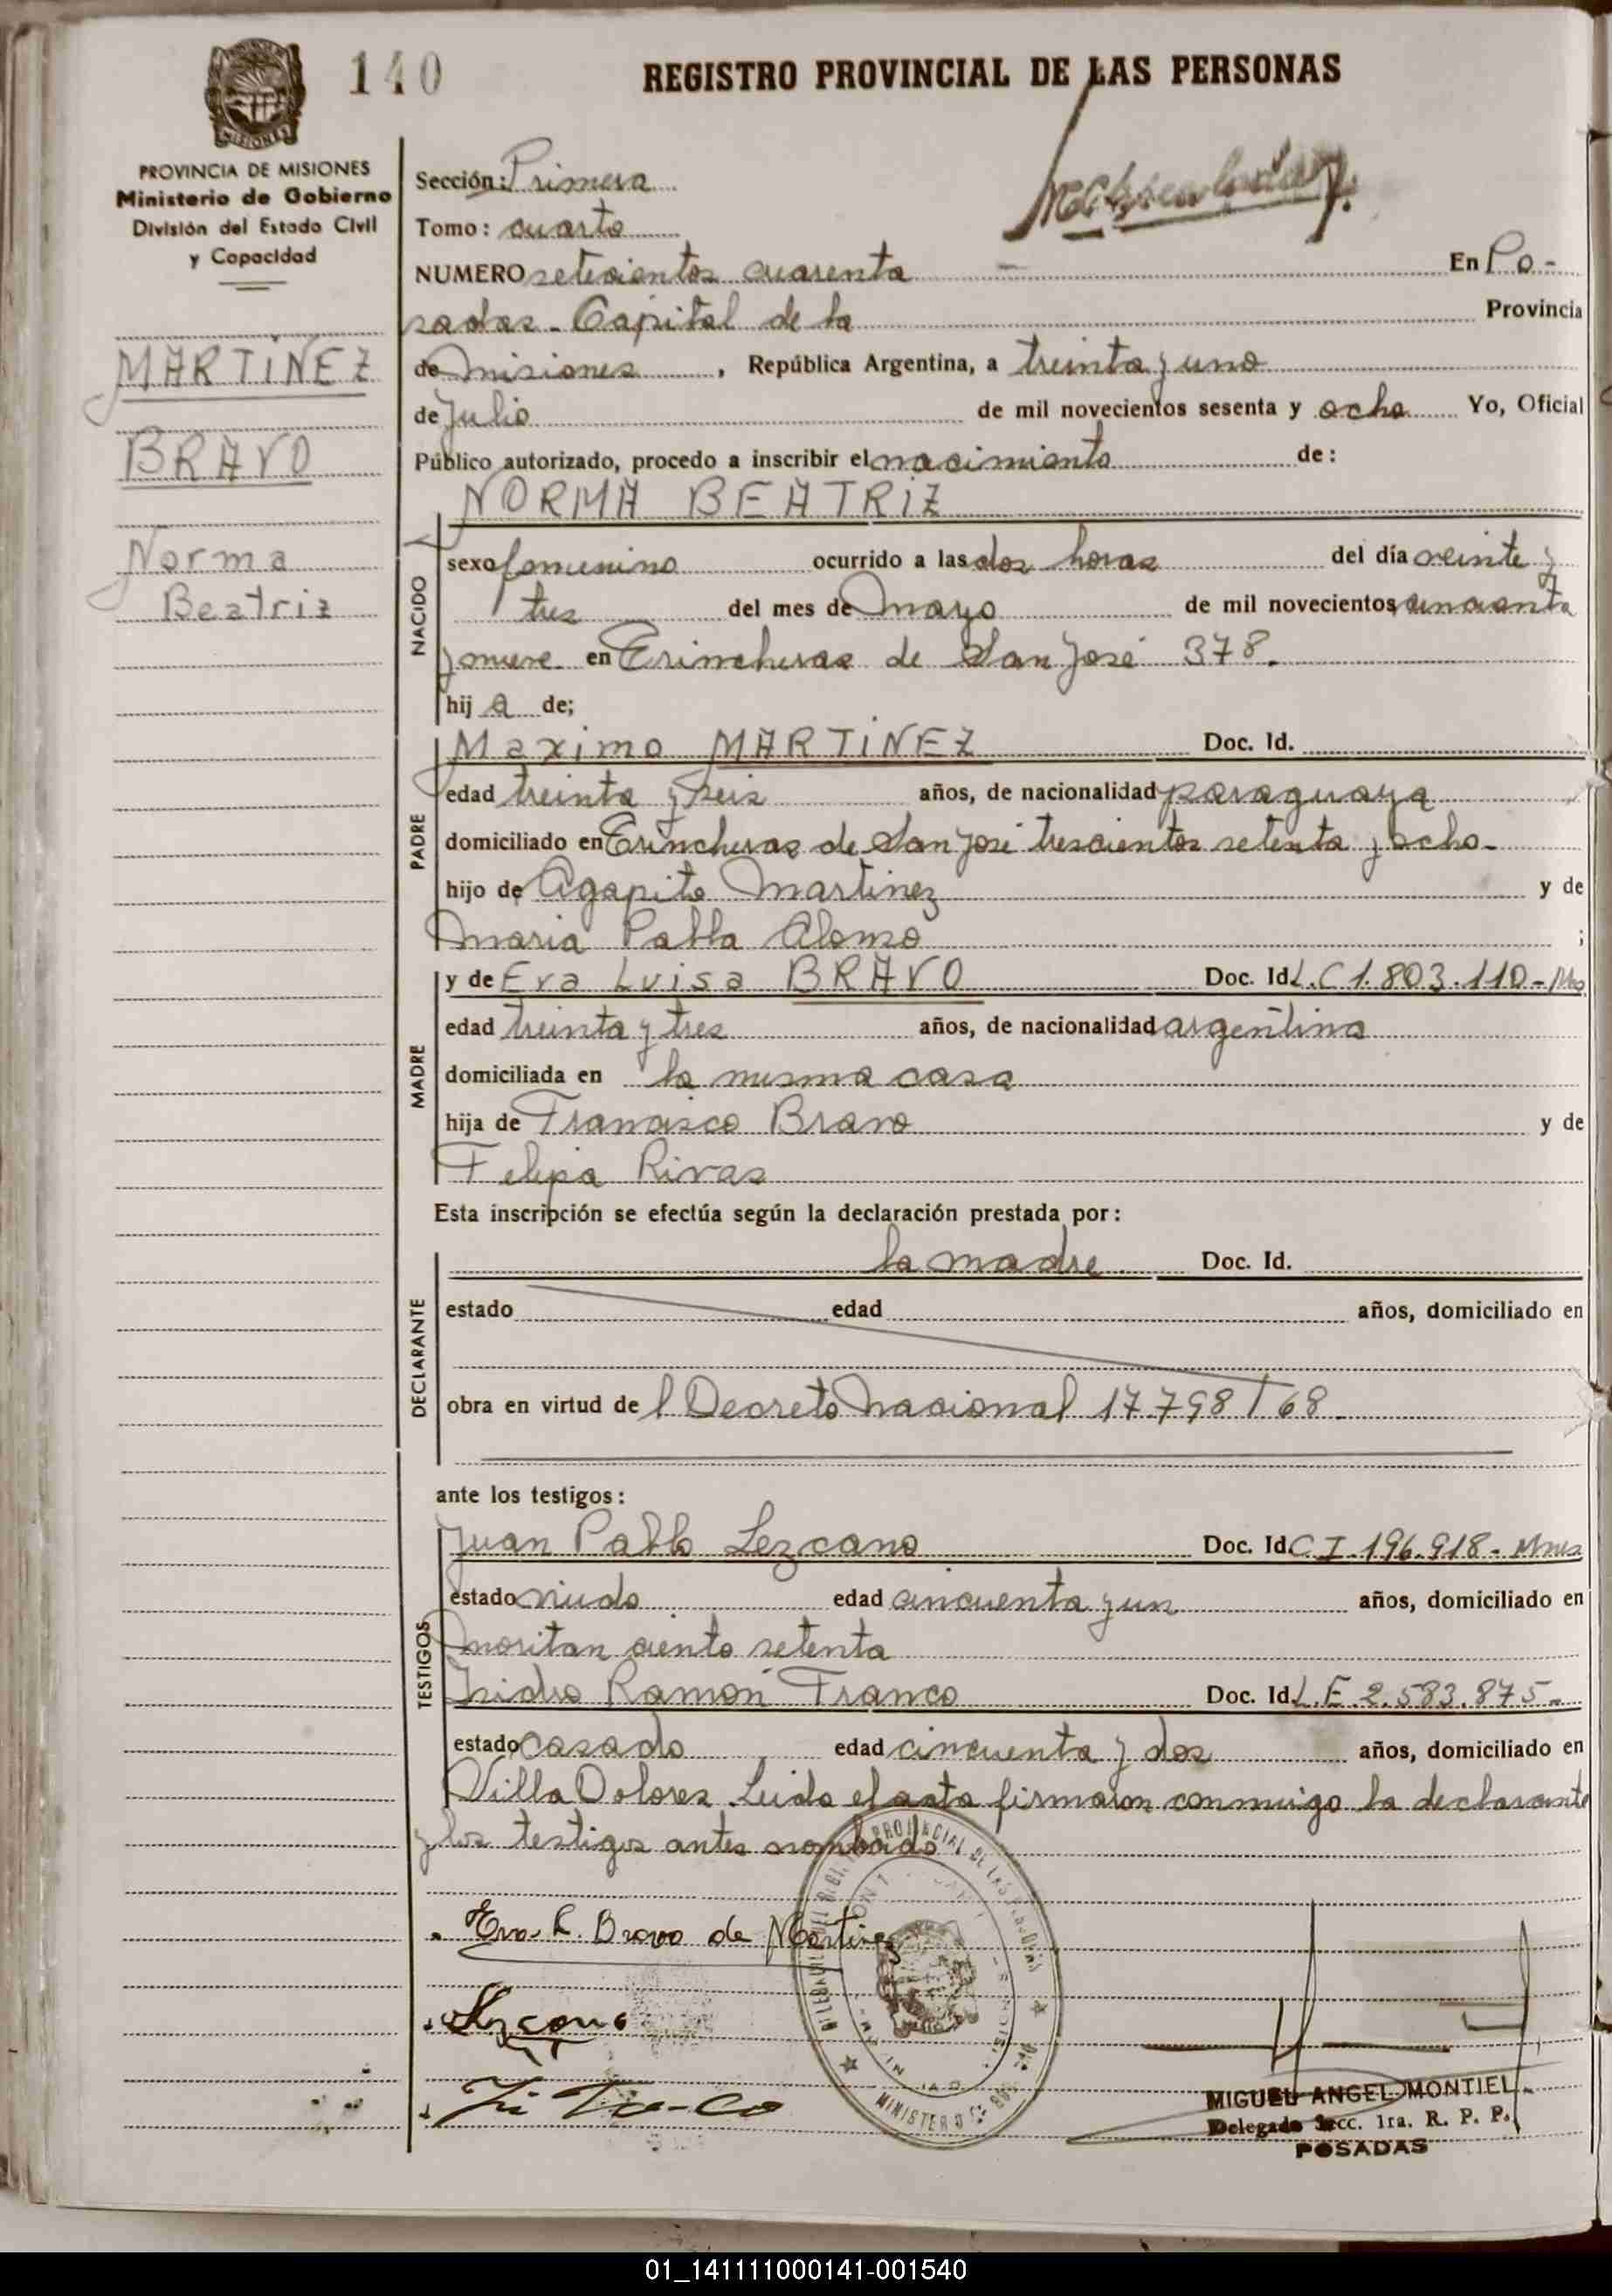 140
REGISTRO PROVINCIAL DE LAS PERSONAS
MISIONES
PROVINCIA DE MISIONES
Ministerio de Gobierno
División del Estado Civil
y Capacidad
Sección: Primera
Tomo: cuarto
NUMERO setecientos cuarenta En Po-
sadas. Capital de la Provincia
de misiones, República Argentina, a treinta y uno
de Julio de mil novecientos sesenta y ocho Yo, Oficial
Público autorizado, procedo a inscribir el nacimiento de:
MARTINEZ
BRAVO
Norma
Beatriz
NORMA BEATRIZ
NACIDO
sexo femenino ocurrido a las dos horas del día veinte y
tres del mes de mayo de mil novecientos cincuenta
y nueve en Trincheras de San José 378.
hij a de;
PADRE
Maximo MARTINEZ Doc. Id.
edad treinta y seis años, de nacionalidad paraguaya
domiciliado en Trincheras de San José trescientos setenta y ocho-
hijo de Agapito Martinez y de
Maria Pabla Alonso ;
MADRE
y de Eva Luisa BRAVO Doc. Id. L.C 1.803.110-
edad treinta y tres años, de nacionalidad argentina
domiciliada en la misma casa
hija de Francisco Bravo y de
Felipa Rivas
Esta inscripción se efectúa según la declaración prestada por:
DECLARANTE
la madre. Doc. Id.
estado edad años, domiciliado en
obra en virtud de l Decreto Nacional 17798/68.
ante los testigos:
TESTIGOS
Juan Pablo Lezcano Doc. Id C I. 196.918- Mnes
estado viudo edad cincuenta y un años, domiciliado en
moritan ciento setenta
Isidro Ramón Franco Doc. Id L.E. 2.583.875-
estado casado edad cincuenta y dos años, domiciliado en
Villa Dolores. Leida el acta firmaron conmigo la declarante
y los testigos antes nombrado
Eva L. Bravo de Martinez
Lezcano
MIGUEL ANGEL MONTIEL
Delegado Secc. 1ra. R. P. P.
POSADAS
01_141111000141-001540